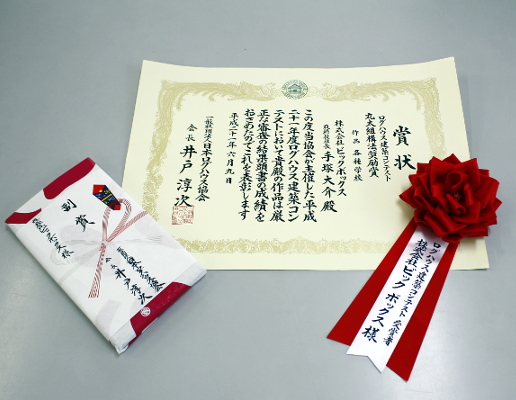 賞状
ログハウス建築コンテスト
丸太組構法奨励賞
作品 各種学校
株式会社ビックボックス
手塚大介 殿
この度当協会が主催した平成
二十一年度ログハウス建築コン
テストにおいて貴殿の作品は厳
正な審査の結果頭書の成績を
おさめたのでこれを表彰します
平成二十一年六月九日
一般社団法人日本ログハウス協会
会長 井戸淳次
副賞
井戸淳次
ログハウス建築コンテスト 受賞者
株式会社ビック ボックス 様